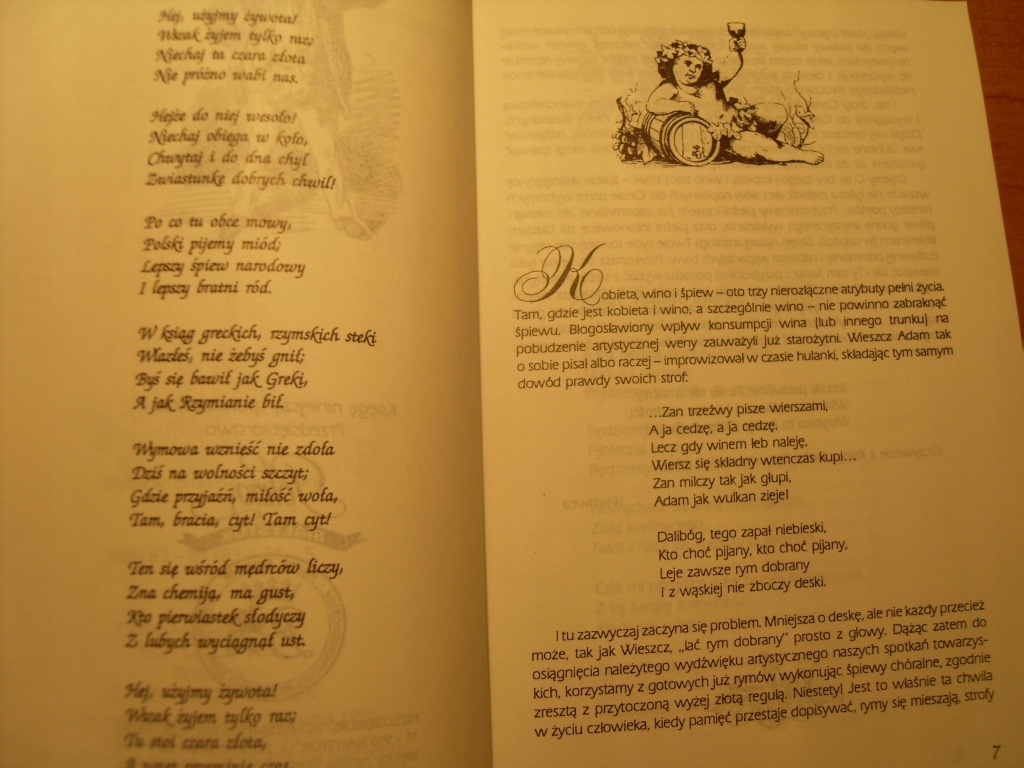 Hej, użyjmy żywota!
Wszak żyjem tylko raz;
Niechaj ta czara złota
Nie próżno wabi nas.
Hejże do niej wesoło!
Niechaj obiega w koło,
Chwytaj i do dna chyl
Zwiastunkę dobrych chwil!
Po co tu obce mowy,
Polski pijemy miód;
Lepszy śpiew narodowy
I lepszy bratni ród.
W ksiąg greckich, rzymskich steki
Wlazłeś, nie żebyś gnił;
Byś się bawił jak Greki,
A jak Rzymianie bił.
Wymowa wznieść nie zdoła
Dziś na wolności szczyt;
Gdzie przyjaźń, miłość woła,
Tam, bracia, cyt! Tam cyt!
Ten się wśród mędrców liczy,
Zna chemiją, ma gust,
Kto pierwiastek słodyczy
Z lubych wyciągnął ust.
Hej, użyjmy żywota!
Wszak żyjem tylko raz;
Tu stoi czara złota,
Kobieta, wino i śpiew – oto trzy nierozłączne atrybuty pełni życia.
Tam, gdzie jest kobieta i wino, a szczególnie wino – nie powinno zabraknąć
śpiewu. Błogosławiony wpływ konsumpcji wina (lub innego trunku) na
pobudzenie artystycznej weny zauważyli już starożytni. Wieszcz Adam tak
o sobie pisał albo raczej – improwizował w czasie hulanki, składając tym samym
dowód prawdy swoich strof:
...Zan trzeźwy pisze wierszami,
A ja cedzę, a ja cedzę.
Lecz gdy winem łeb naleję,
Wiersz się składny wtenczas kupi...
Zan milczy tak jak głupi,
Adam jak wulkan zieje!
Dalibóg, tego zapał niebieski,
Kto choć pijany, kto choć pijany,
Leje zawsze rym dobrany
I z wąskiej nie zboczy deski.
I tu zazwyczaj zaczyna się problem. Mniejsza o deskę, ale nie każdy przecież
może, tak jak Wieszcz, „lać rym dobrany” prosto z głowy. Dążąc zatem do
osiągnięcia należytego wydźwięku artystycznego naszych spotkań towarzys-
kich, korzystamy z gotowych już rymów wykonując śpiewy chóralne, zgodnie
zresztą z przytoczoną wyżej złotą regułą. Niestety! Jest to właśnie ta chwila
w życiu człowieka, kiedy pamięć przestaje dopisywać, rymy się mieszają, strofy
7